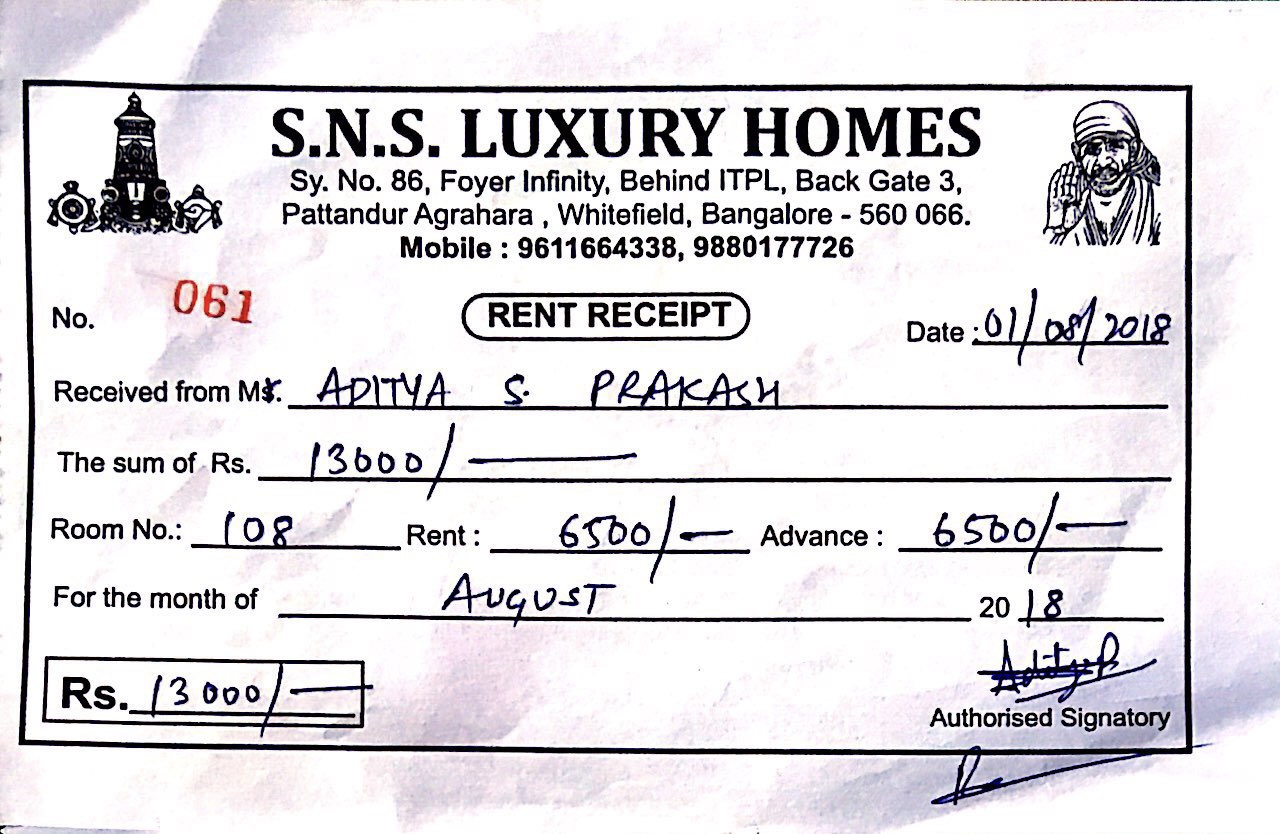 S.N.S. LUXURY HOMES
Sy. No. 86, Foyer Infinity, Behind ITPL, Back Gate 3,
Pattandur Agrahara , Whitefield, Bangalore - 560 066.
Mobile : 9611664338, 9880177726
No. 061 RENT RECEIPT Date : 01/08/2018
Received from Mr. ADITYA S. PRAKASH
The sum of Rs. 13000/—
Room No.: 108 Rent : 6500/— Advance : 6500/—
For the month of AUGUST 20 18
Rs. 13000/— AdityaP.
Authorised Signatory